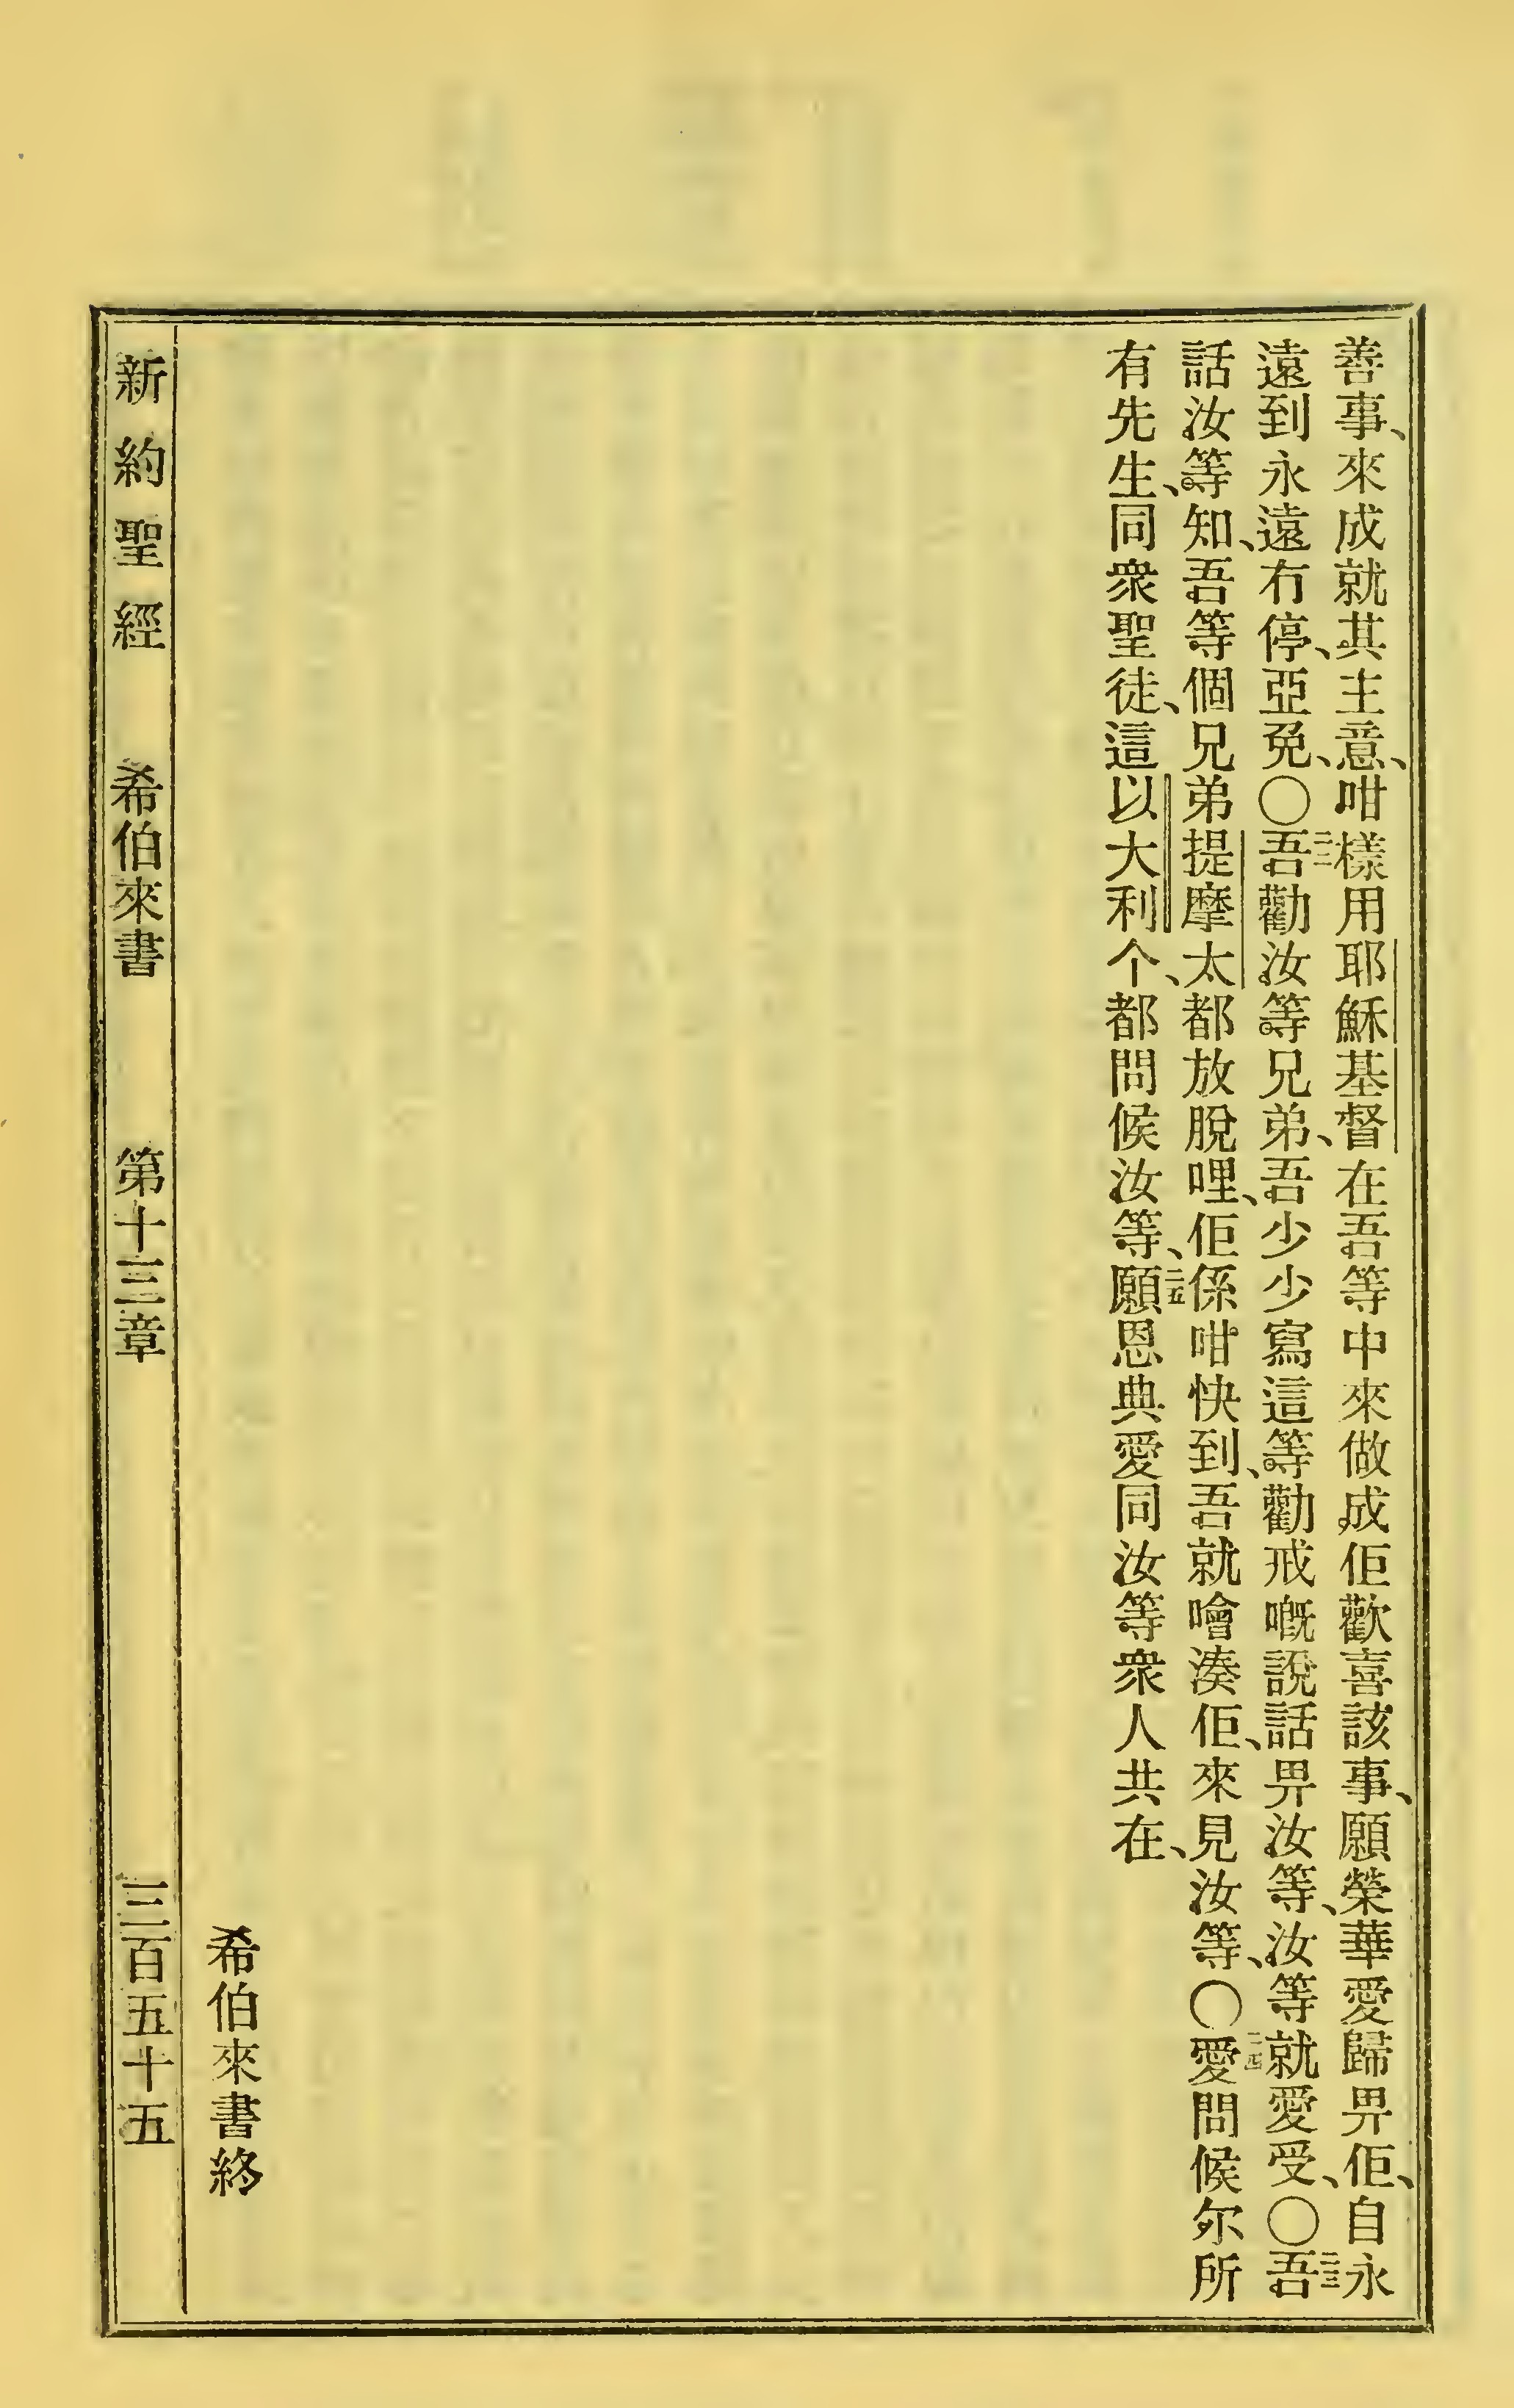 善事、來成就其主意、咁樣用耶穌基督在吾等中來做成佢歡喜該事、願榮華愛歸畀佢、自永
遠到永遠冇停、亞免、〇二二吾勸汝等兄弟、吾少少寫這等勸戒嘅說話畀汝等、汝等就愛受、〇二三吾
話汝等知、吾等個兄弟提摩太都放脫哩、佢係咁快到、吾就噲湊佢、來見汝等、〇二四愛問候尔所
有先生、同衆聖徒、這以大利个、都問候汝等、二五願恩典愛同汝等衆人共在、
希伯來書終
新約聖經 希伯來書 第十三章 三百五十五